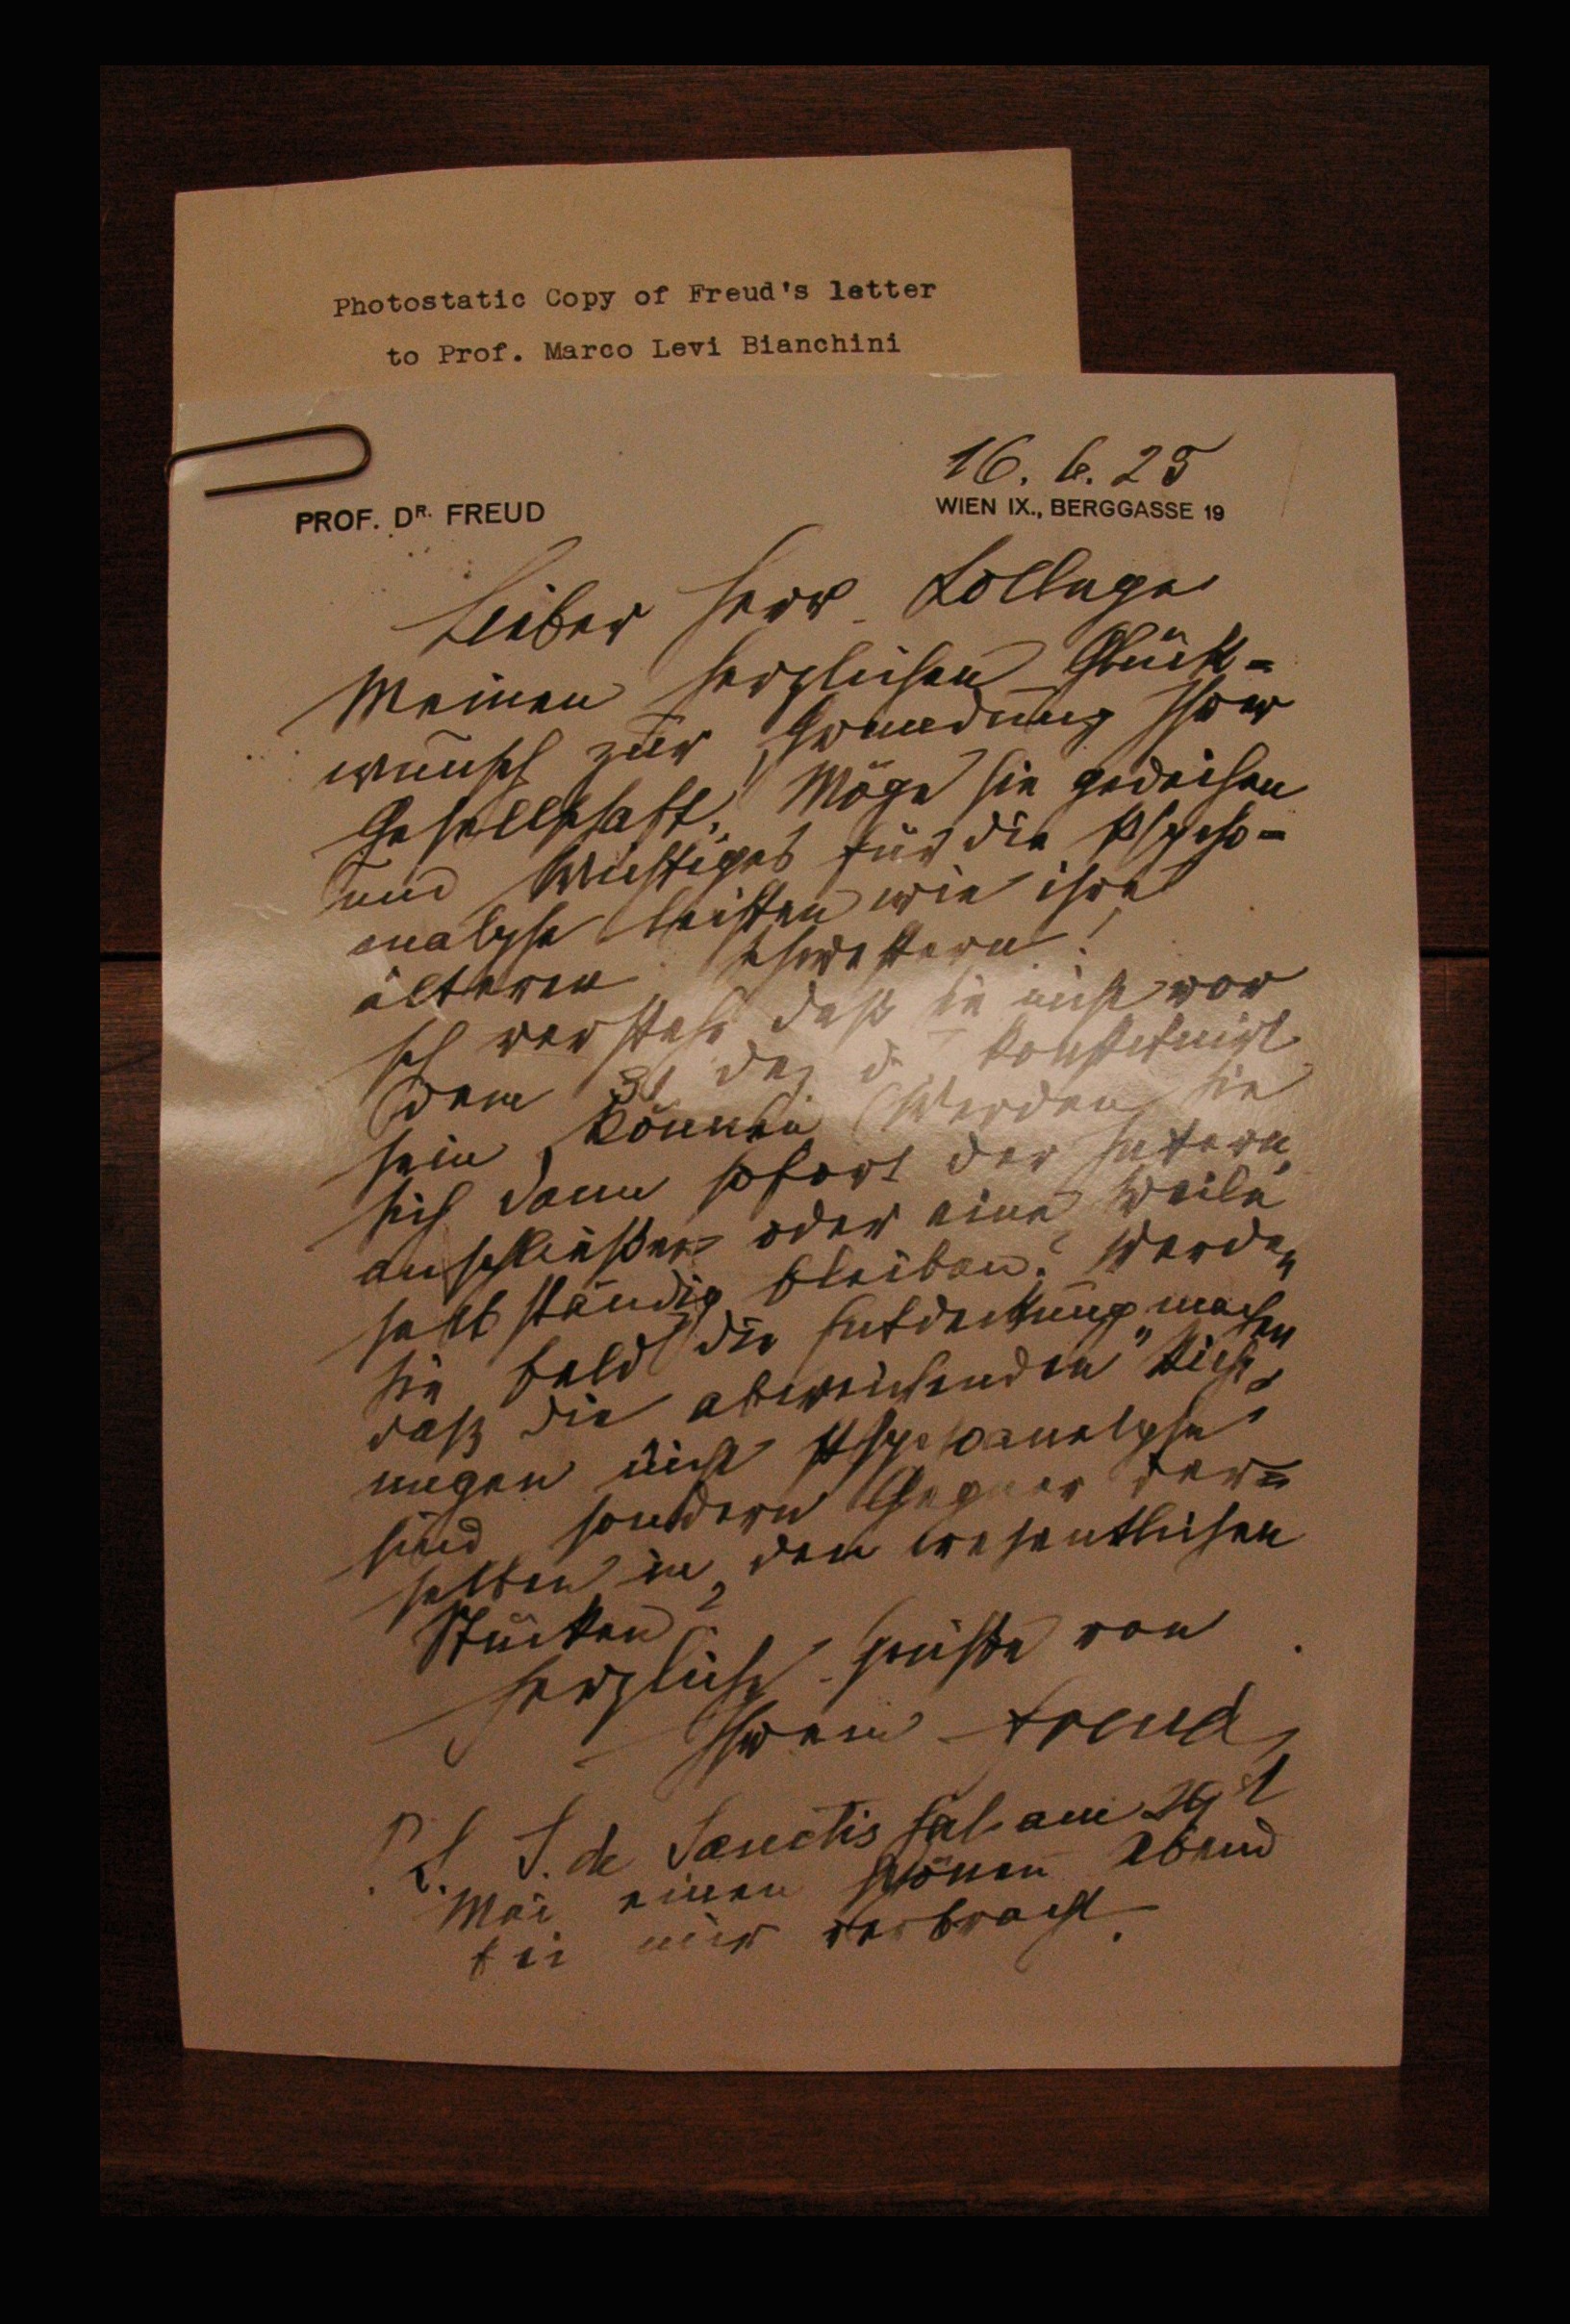 Photostatic Copy of Freud's letter
to Prof. Marco Levi Bianchini
16. 6. 25
PROF. DR. FREUD
WIEN IX., BERGGASSE 19
Lieber Herr Kollege
Meinen herzlichen Glück-
wunsch zur Gründung Ihrer
Gesellschaft. Möge sie gedeihen
und Wichtiges für die Psycho-
analyse leisten wie ihre
älteren Schwestern!
Ich verstehe daß sie nicht vor
dem 31 Dez d. konstituirt
sein können. Werden Sie
sich dann sofort der Intern.
anschließen oder eine Weile
selbständig bleiben? Werden
Sie bald die Entdeckung machen
daß die abweichenden "Rich-
nugen nicht Psychoanalyse
sind sondern Gegner der-
selben in den wesentlichen
Stücken?
Herzliche Grüße von
Ihrem Freud
P.S. S. de Sanctis hat am 29st
Mai einen schönen Abend
bei mir verbracht.